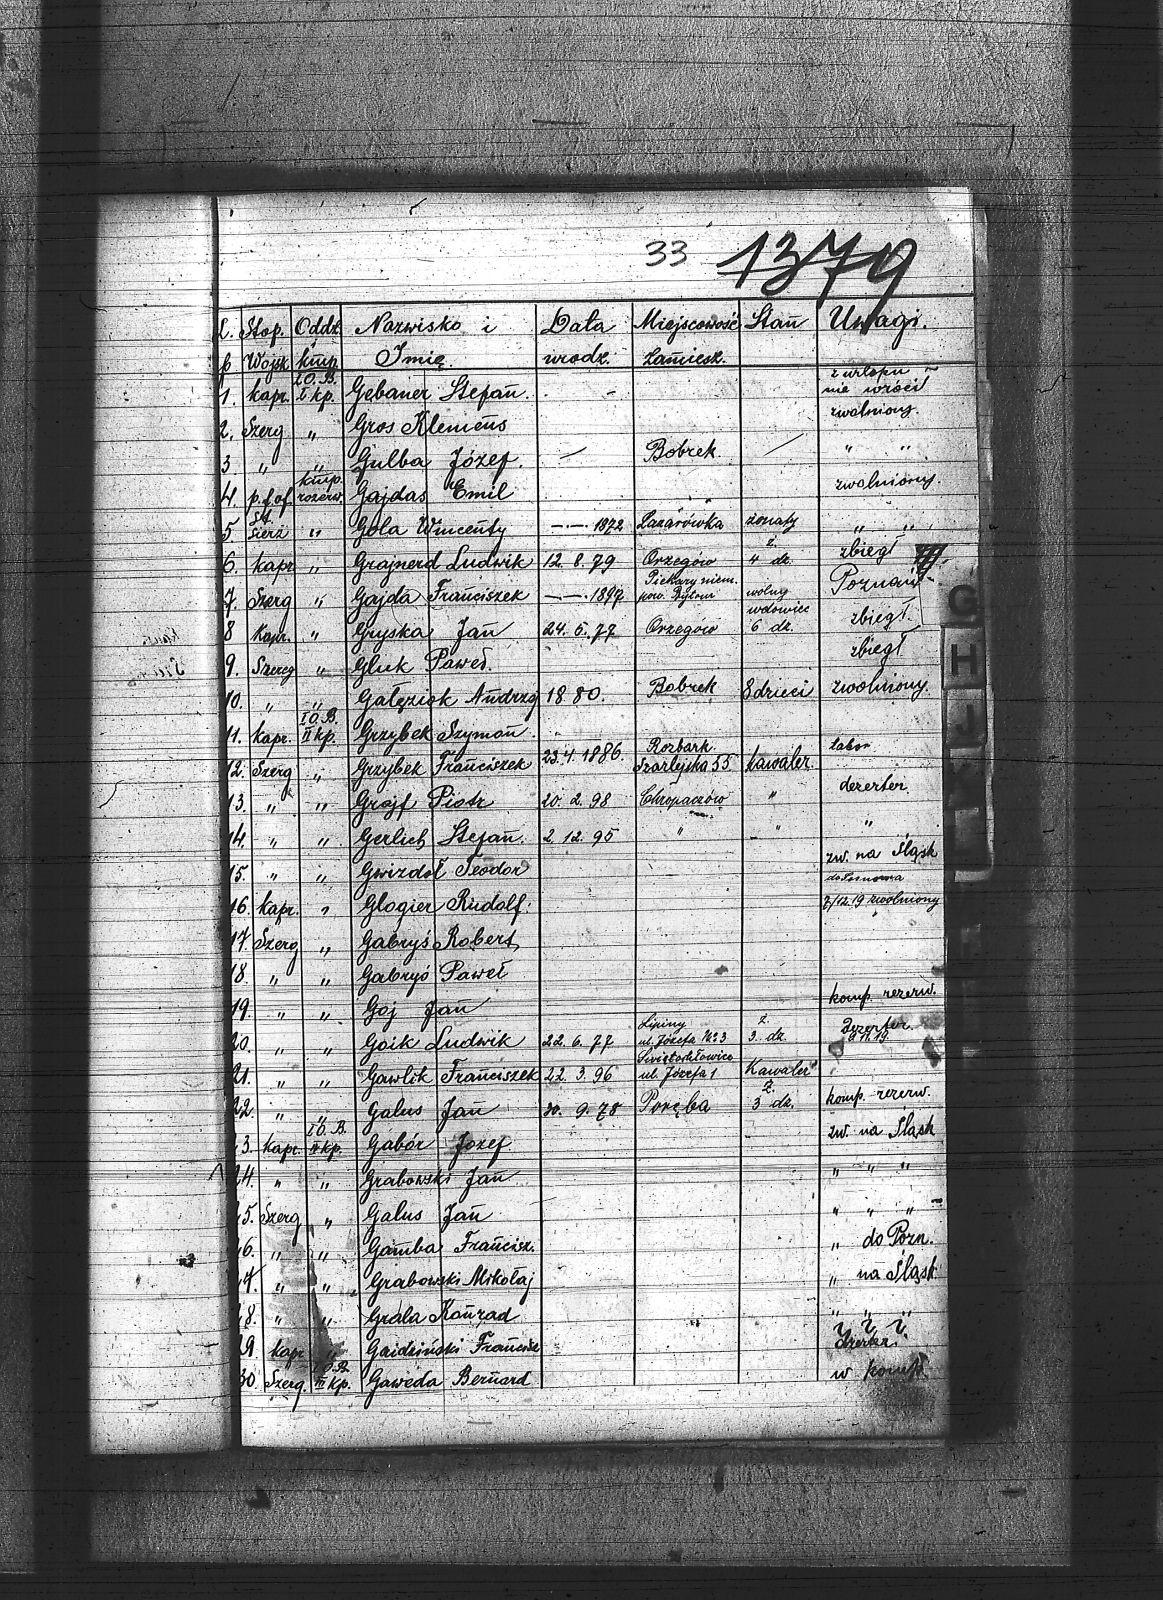 33 1379
L. Stop. Oddz. Nazwisko i Data Miejscowość Stan Uwagi.
p Wojsk kmp. Imię. urodz. zamiesz.
1. kapr. I O.B. I kp. Gebauer Stefan. z urlopu nie wrócił
2. Szerg „ Gros Klemens zwolniony.
3 „ „ Gulba Józef. — Bobrek — „ „
4. p.f.of kmp. rozerw. Gajdas Emil zwolniony.
5 St. sierż „ Gola Wincenty —·— 1872 Łazarówka żonaty „ „
6. kapr „ Grajnerd Ludwik 12. 8. 79 Orzegów ż 4 dz. zbiegł
7. Szerg „ Gajda Franciszek —·— 1897 Piekary niem. pow. Bytom wolny Poznań
8 Kapr. „ Gryska Jan 24. 6. 77 Orzegów wdowiec 6 dz. zbiegł.
9. Szereg „ Gluk Paweł. zbiegł
10. „ „ Gałęziok Andrzej 1880. Bobrek 8 dzieci zwolniony.
11. kapr. I O.B. II kp. Grzybek Szymon.
12. Szerg „ Grzybek Franciszek 23. 4. 1886. Rozbark. Szarlejska 55 kawaler. tabor
13. „ „ Grajf Piotr 20. 2. 98 Chropaczów „ dezerter.
14. „ „ Gerlich Stefan. 2. 12. 95 „ „ „
15. „ „ Gwizdoł Teodor zw. na Śląsk
16. kapr. „ Glogier Rudolf. 7/12.19 zwolniony
17. Szerg „ Gabryś Robert
18. „ „ Gabryś Paweł
19. „ „ Goj Jan komp. rezerw.
20. „ „ Goik Ludwik 22. 6. 77 Lipiny ul. Józefa No 3 ż. 3. dz. Dezerter. 11.19.
21. „ „ Gawlik Franciszek 22. 3. 96 Świętochłowice ul. Józefa 1 Kawaler
22. „ „ Galus Jan 30. 9. 78 Poręba ż. 3 dz. komp. rezerw.
3. kapr. I O.B. III kp. Gabór Józef zw. na Śląsk
24. „ „ Grabowski Jan „ „ „
5. Szerg „ Galus Jan „ „ „
6. „ „ Gamba Francisz. „ do Pozn.
7. „ „ Grabowski Mikołaj „ na Śląsk
8. „ „ Grala Konrad „ „ „
29. kapr „ Gaidziński Francisz dezerter.
30. Szerg. I O.B. III kp. Gaweda Bernard w komp.
G
H
J
K
L